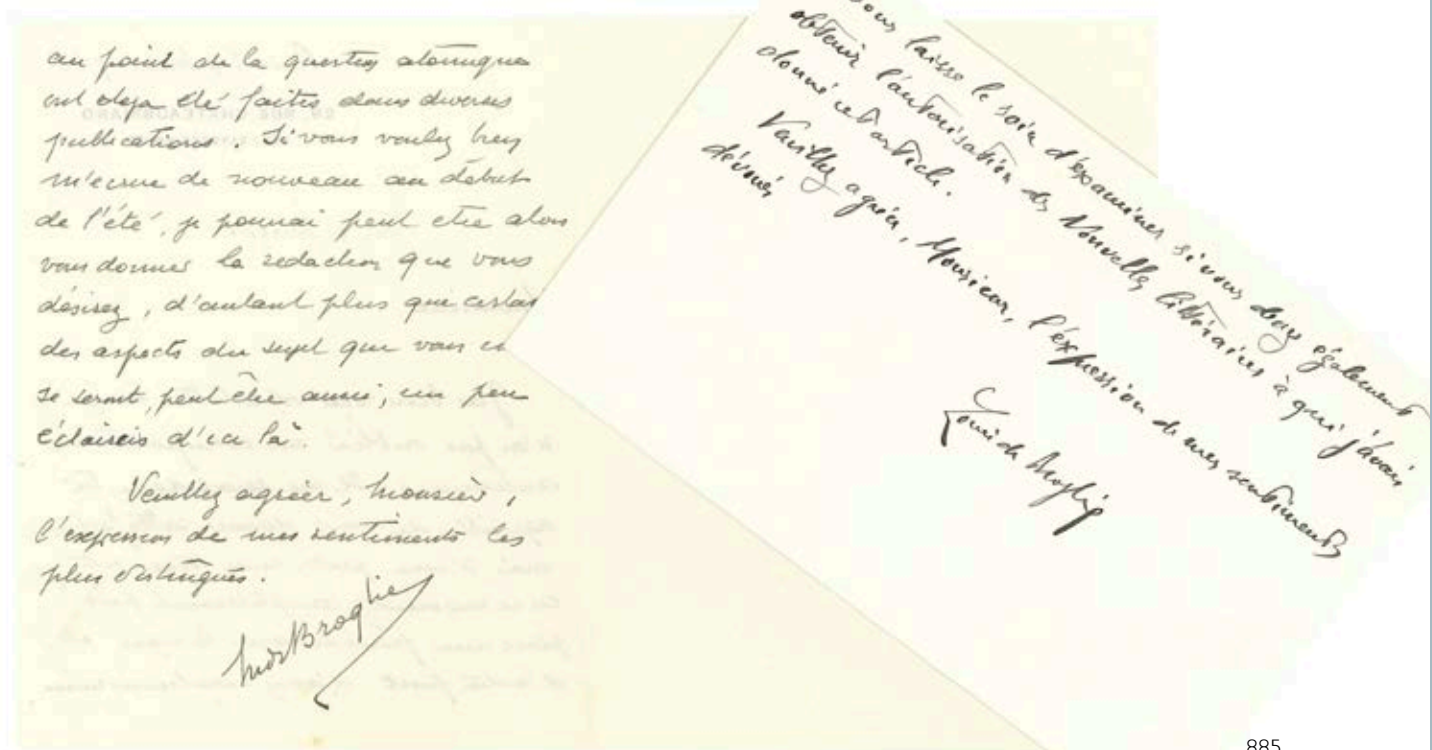 au point de la question atomique
ont deja été faites dans diverses
publications. Si vous voulez bien
m'ecrire de nouveau au début
de l'été, je pourrai peut etre alors
vous donner la redaction que vous
désirez, d'autant plus que certai
des aspects du sujet que vous
se seront, peut être aussi, un peu
éclaircis d'ici là.
Veuillez agréer, Monsieur,
l'expression de mes sentiments les
plus distingués.
Broglie
vous laisse le soin d'examiner si vous devez également
obtenir l'autorisation des Nouvelles littéraires à qui j'avais
donné cet article.
Veuillez agréer, Monsieur, l'expression de mes sentiments
dévoués
Louis de Broglie
885